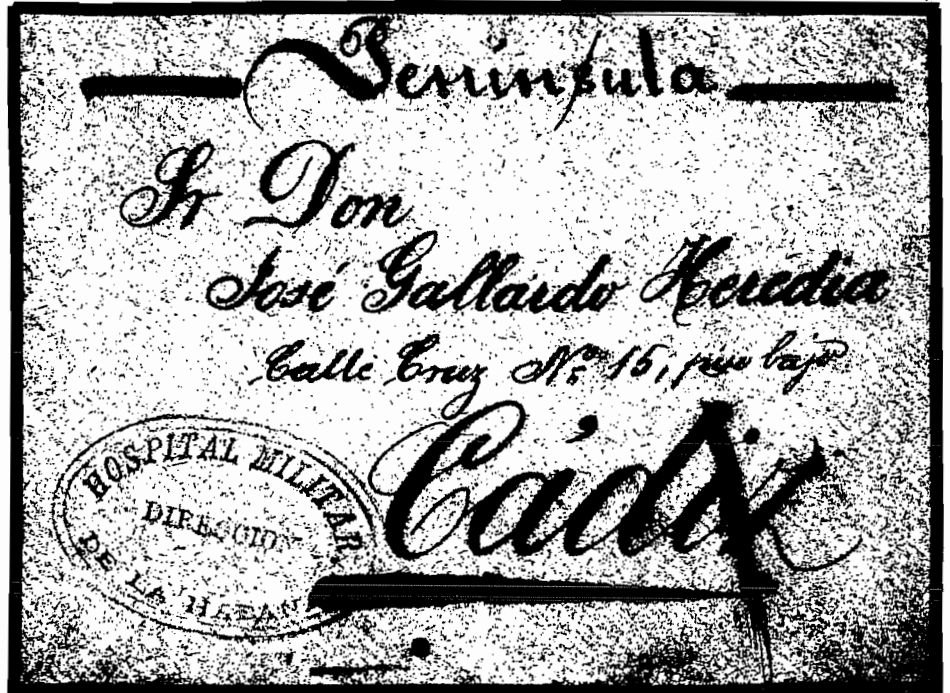 Península
Sr Don
José Gallardo Heredia
Calle Cruz Nº 15, piso bajo
Cádiz
HOSPITAL MILITAR
DIRECCIO
DE LA HABAN